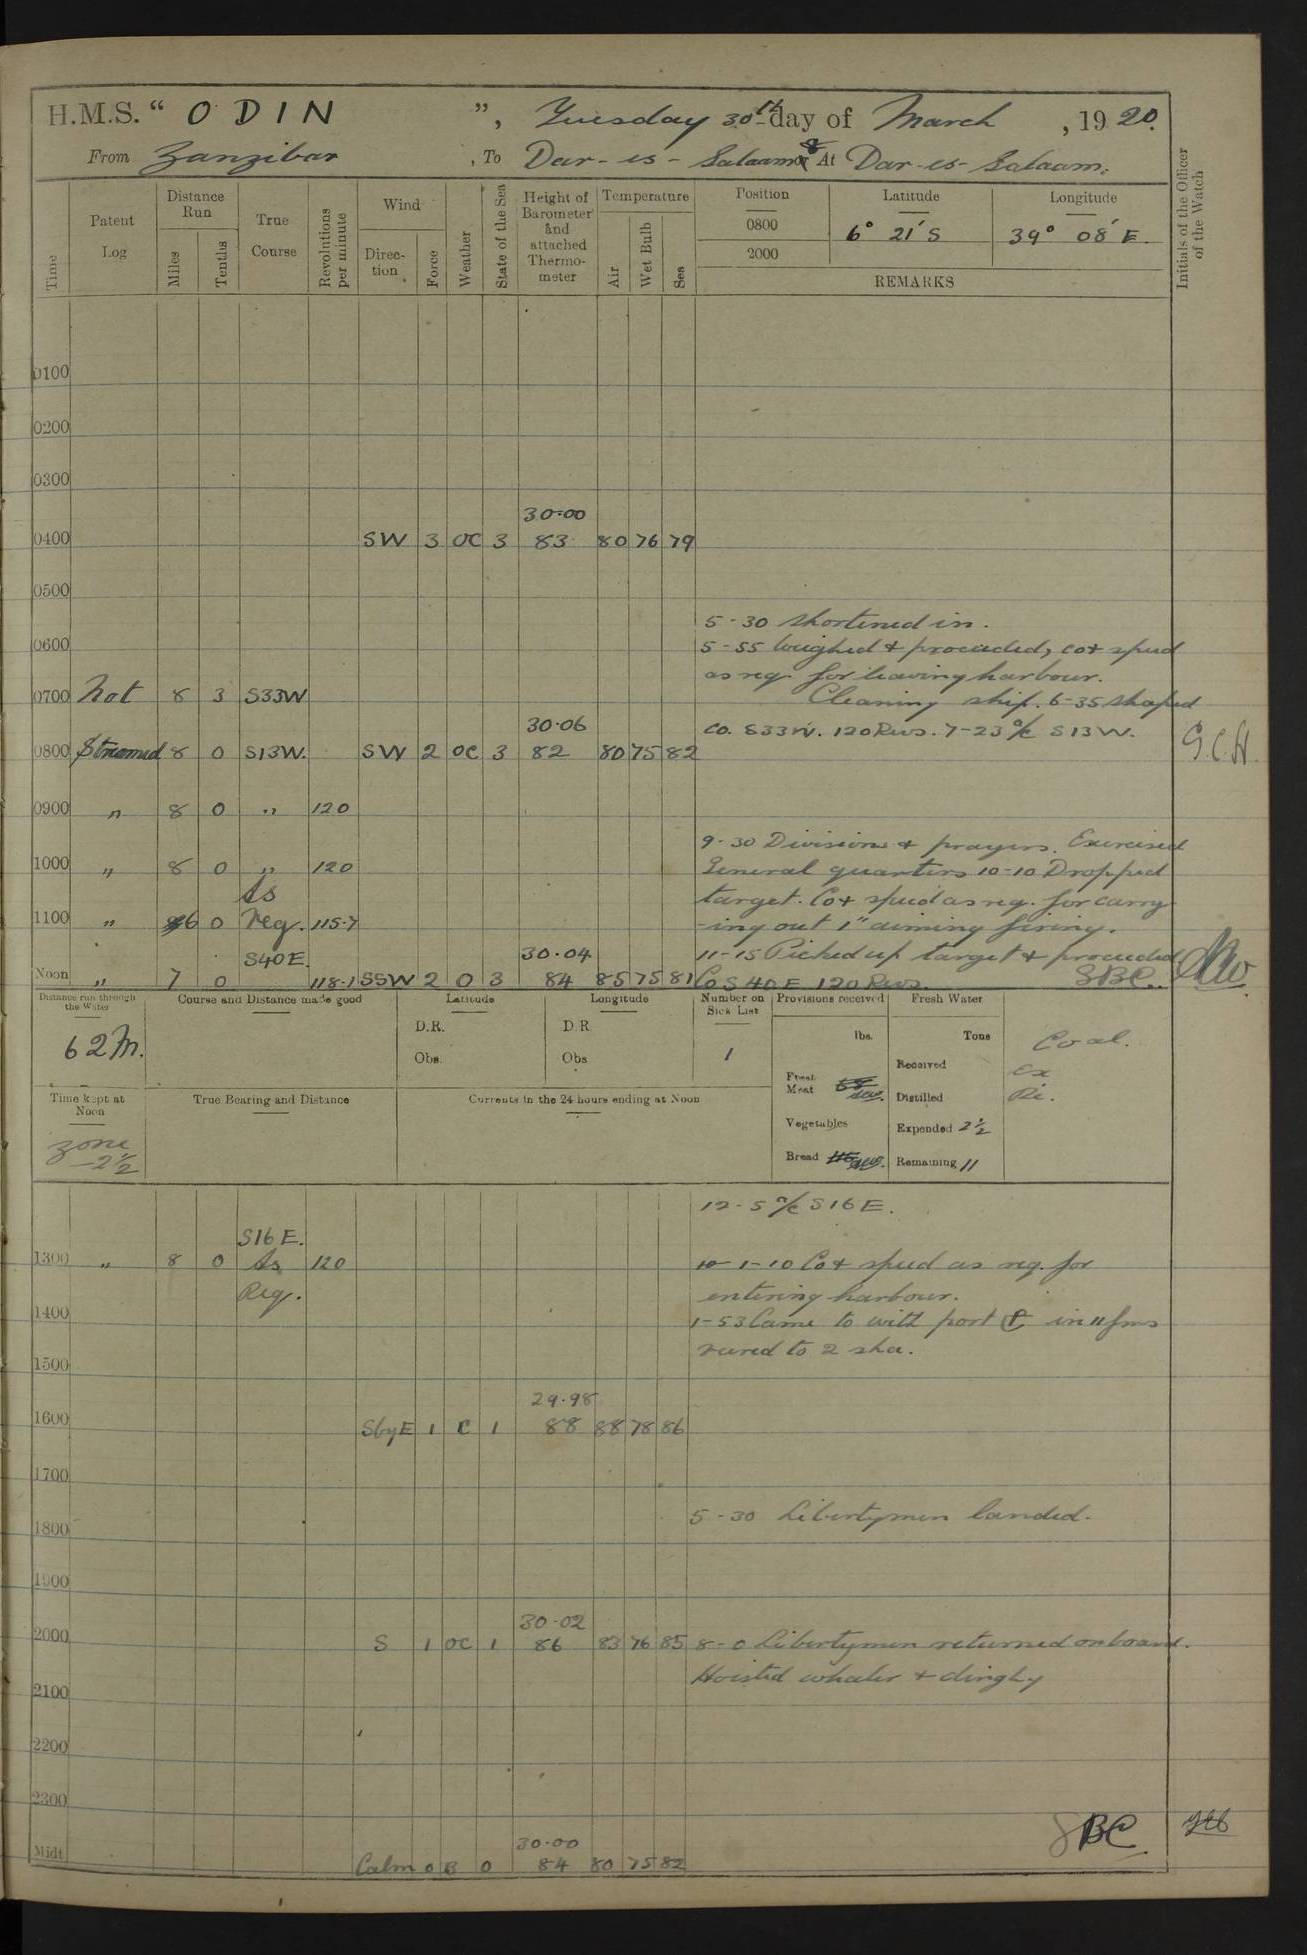 H.M.S. “ ODIN ”, Tuesday 30th day of March, 1920.
From Zanzibar, To Dar-es-Salaam & At Dar-es-Salaam.
Time
Patent Log
Distance Run
Miles
Tenths
True Course
Revolutions per minute
Wind
Direction
Force
Weather
State of the Sea
Height of Barometer and attached Thermometer
Temperature
Air
Wet Bulb
Sea
Position
0800
2000
Latitude
6° 21´ S
Longitude
39° 08´ E.
REMARKS
Initials of the Officer of the Watch
0100
0200
0300
30·00
0400 SW 3 OC 3 83 80 76 79
0500
5-30 Shortened in.
0600 5-55 Weighed & proceeded, co & speed
as req. for leaving harbour.
0700 Not 8 3 S33W Cleaning ship. 6-35 Shaped
30·06 co. S33W. 120 Revs. 7-23 a/c S13W.
0800 Streamed 8 0 S13W. SW 2 OC 3 82 80 75 82 G.C.H.
0900 " 8 0 " 120
9-30 Divisions & prayers. Exercised
1000 " 8 0 " 120 General quarters 10-10 Dropped
As target. Co & speed as req. for carry
1100 " 6 0 req. 115·7 -ing out 1" aiming firing.
S40E. 30·04 11-15 Picked up target & proceeded
Noon " 7 0 118·1 SSW 2 O 3 84 85 75 81 Co S40E 120 Revs. SBC.
Distance run through the Water
62 M.
Course and Distance made good
Latitude
D.R.
Obs.
Longitude
D.R.
Obs
Number on Sick List
1
Provisions received
lbs.
Fresh Meat
Vegetables
Bread
Fresh Water
Tons
Received
Distilled
Expended 2½
Remaining 11
Coal.
Ex
Re.
Time kept at Noon
Zone -2½
True Bearing and Distance
Currents in the 24 hours ending at Noon
12-5 a/c S16E.
S16E.
1300 " 8 0 As 120 1-10 Co & speed as req. for
Req. entering harbour.
1400 1-53 Came to with port ⚓ in 11 fms
veered to 2 sha.
1500
29·98
1600 SbyE 1 C 1 88 88 78 86
1700
5-30 Libertymen landed.
1800
1900
30·02
2000 S 1 OC 1 86 83 76 85 8-0 Libertymen returned onboard.
Hoisted whaler & dinghy
2100
2200
2300
SBC
30·00
Midt. Calm 0 B 0 84 80 75 82